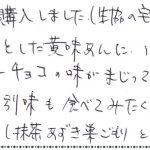 購入しました(生協の宅
とした黄味あんに、
ーチョコの味がまじって
引味も食べてみたく
(抹茶あずき巣ごもりと